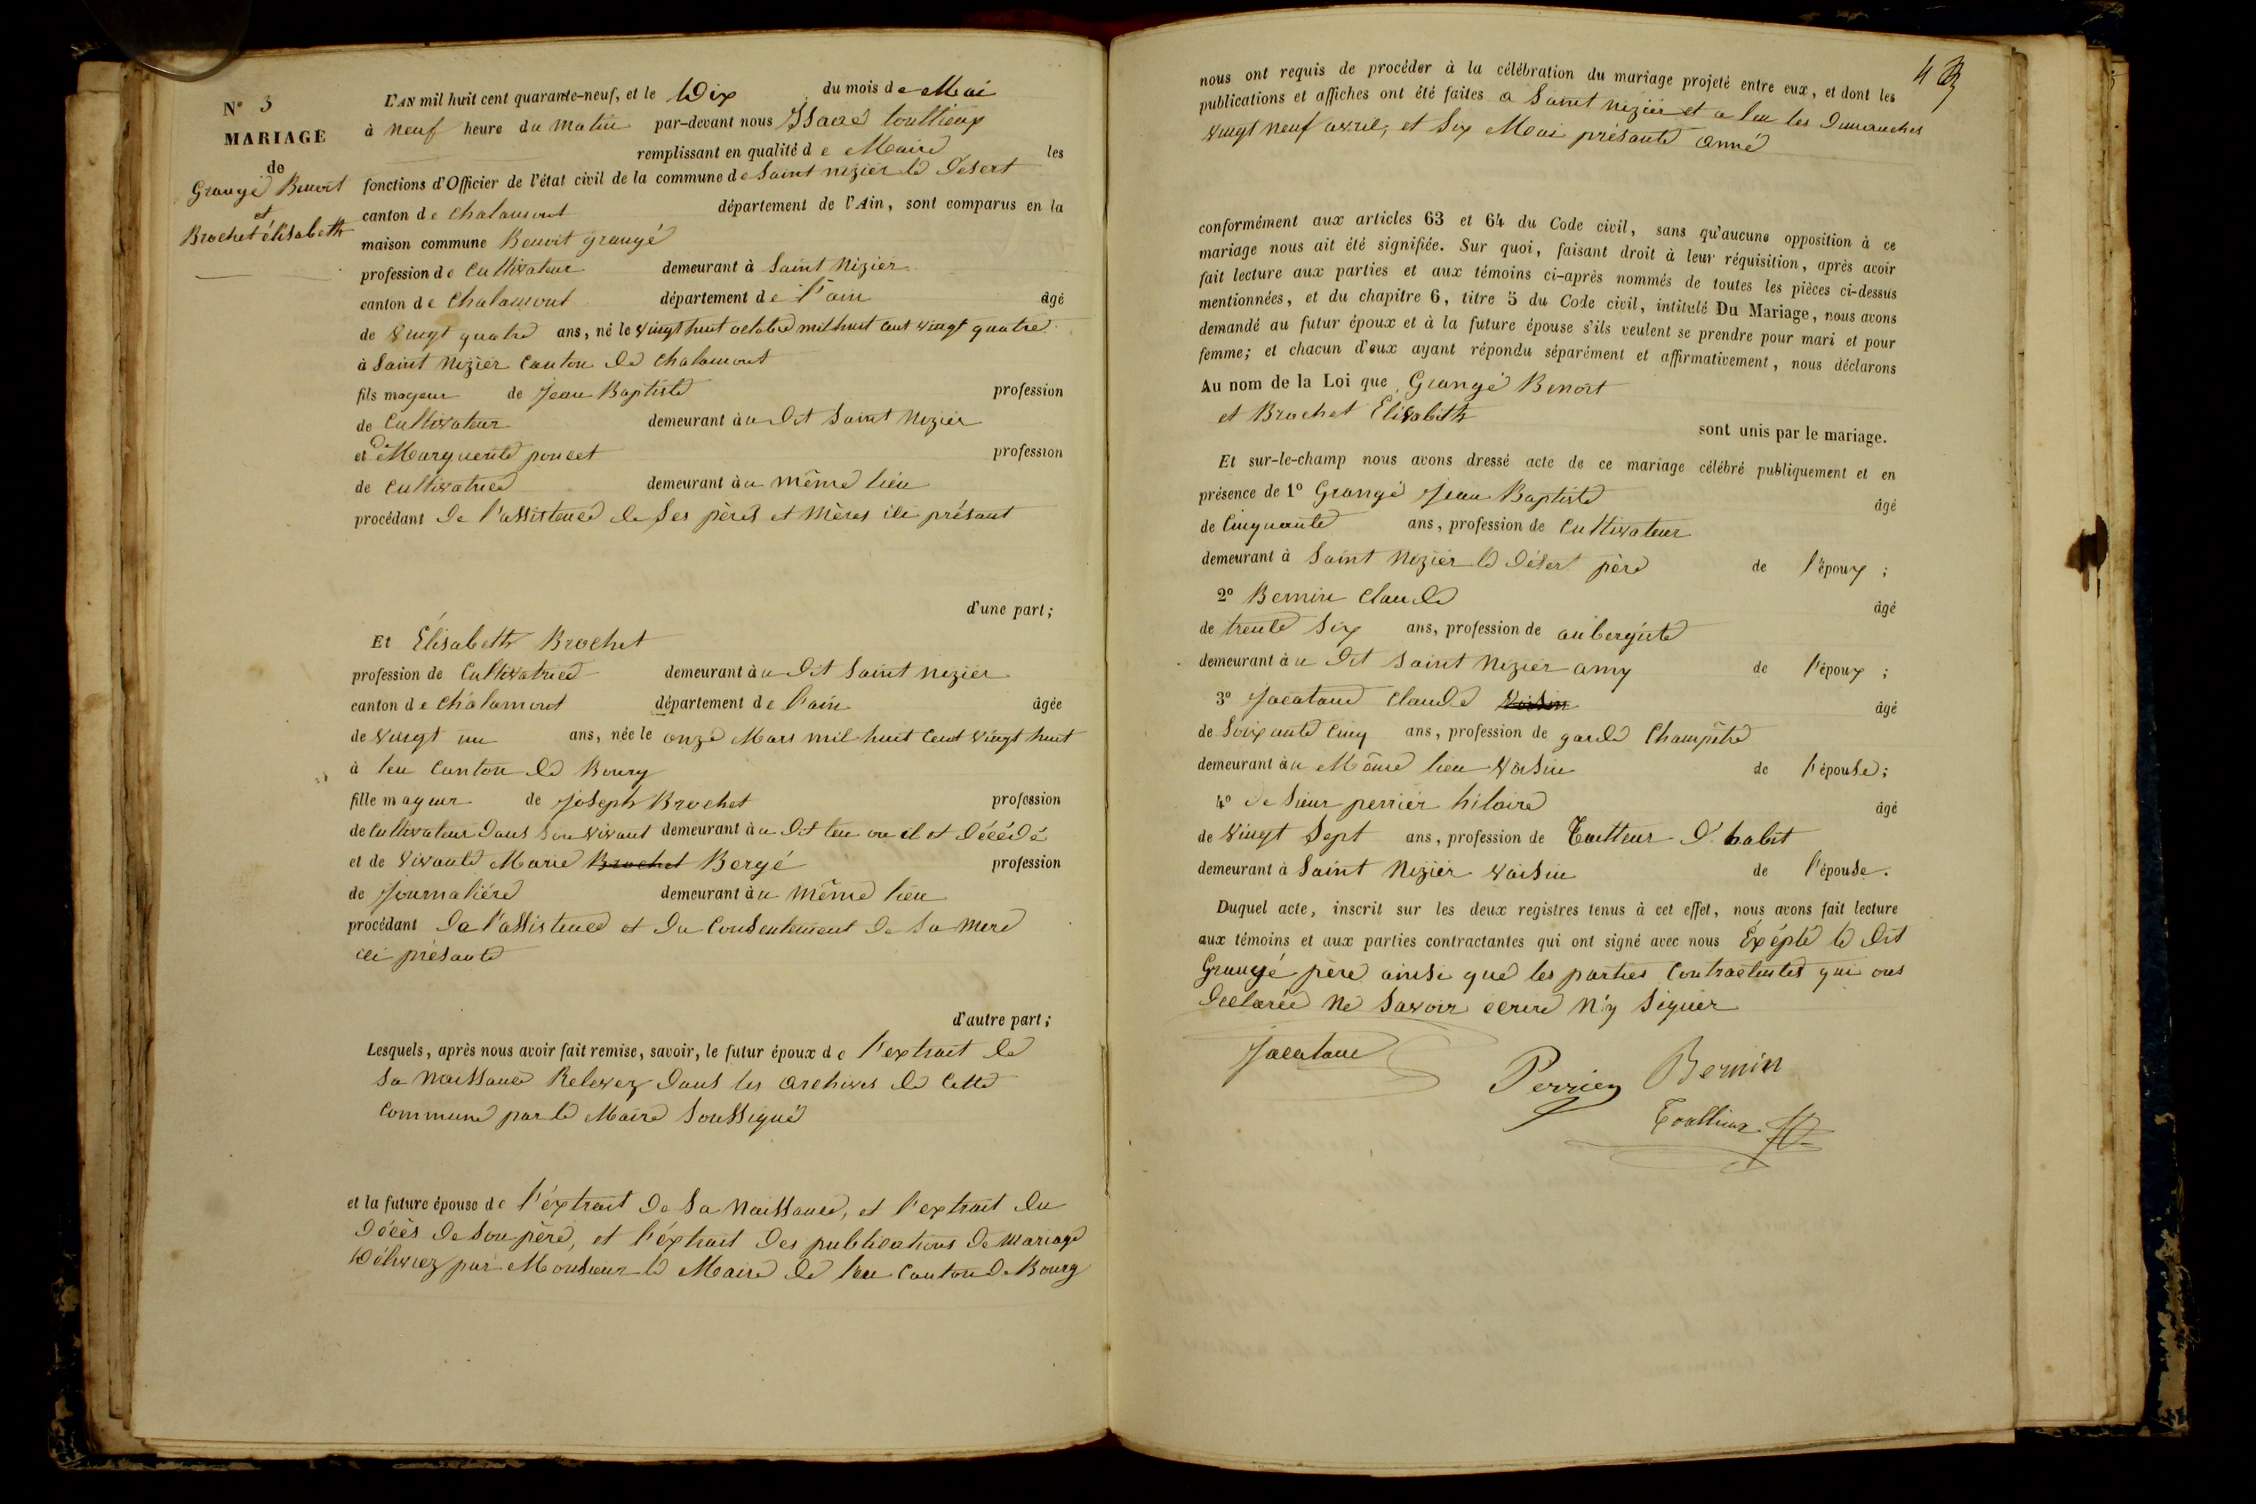 N° 3
MARIAGE
de
Grangé Benoit
et
Brochet élisabeth
L'AN mil huit cent quarante-neuf, et le Dix du mois de Mai
à neuf heure du matin par-devant nous Isaac toullieux
remplissant en qualité de Maire les
fonctions d'Officier de l'état civil de la commune de Saint nizier le Desert
canton de chalamont département de l'Ain, sont comparus en la
maison commune Benoit grangé
profession de Cultivateur demeurant à Saint Nizier
canton de Chalamont département de l'ain âgé
de vingt quatre ans, né le vingt huit octobre mil huit cent vingt quatre
à Saint Nizier Canton de Chalamont
fils mageur de Jean Baptiste profession
de Cultivateur demeurant au dit Saint Nizier
et de Marguerite poncet profession
de Cultivatrice demeurant au même lieu
procédant de l'assistence de ses pères et mères ici présant
d'une part;
Et Élisabeth Brochet
profession de Cultivatrice demeurant au dit Saint nizier
canton de châlamont département de l'ain âgée
de vingt un ans, née le onze Mars mil huit cent vingt huit
à leu Canton de Bourg
fille mageur de Joseph Brochet profession
de Cultivateur dans son vivant demeurant au dit leu ou il et décédé
et de vivante Marie Brochet Bergé profession
de Journalière demeurant au même lieu
procédant de l'assistence et du Consentement de sa mere
ici présante
d'autre part;
Lesquels, après nous avoir fait remise, savoir, le futur époux de l'extrait de
sa naissance Relevez dans les archives de Cette
Commune par le Maire Soussigné
et la future épouse de l'éxtrait de sa naissance, et l'extrait du
décès de son père, et l'éxtrait des publications de mariage
Délivrez par Monsieur le Maire de leu Canton de Bourg
4
nous ont requis de procéder à la célébration du mariage projeté entre eux, et dont les
publications et affiches ont été faites a Saint nizier et a leu les dimanches
vingt neuf avril, et Six Mai présante anné
conformément aux articles 63 et 64 du Code civil, sans qu'aucune opposition à ce
mariage nous ait été signifiée. Sur quoi, faisant droit à leur réquisition, après avoir
fait lecture aux parties et aux témoins ci-après nommés de toutes les pièces ci-dessus
mentionnées, et du chapitre 6, titre 5 du Code civil, intitulé Du Mariage, nous avons
demandé au futur époux et à la future épouse s'ils veulent se prendre pour mari et pour
femme; et chacun d'eux ayant répondu séparément et affirmativement, nous déclarons
Au nom de la Loi que Grangé Benoit
et Brochet Elisabeth
sont unis par le mariage.
Et sur-le-champ nous avons dressé acte de ce mariage célébré publiquement et en
présence de 1° Grangé Jean Baptiste âgé
de Cinquante ans, profession de Cultivateur
demeurant à Saint Nizier le désert père de l'époux;
2° Bernin Claude âgé
de trente six ans, profession de aubergiste
demeurant au dit Saint Nizier amy de l'époux;
3° Jacataud Claude voisin âgé
de Soixante Cinq ans, profession de garde Champêtre
demeurant au Même lieu voisin de l'épouse;
4° de Sieur perrier hilaire âgé
de vingt Sept ans, profession de Tailleur d'habit
demeurant à Saint Nizier voisin de l'épouse.
Duquel acte, inscrit sur les deux registres tenus à cet effet, nous avons fait lecture
aux témoins et aux parties contractantes qui ont signé avec nous Éxépté le dit
Grangé père ainsi que les parties Contractentes qui ons
déclarée ne savoir écrire n'y signer
Perrier Bernin
Toullieux